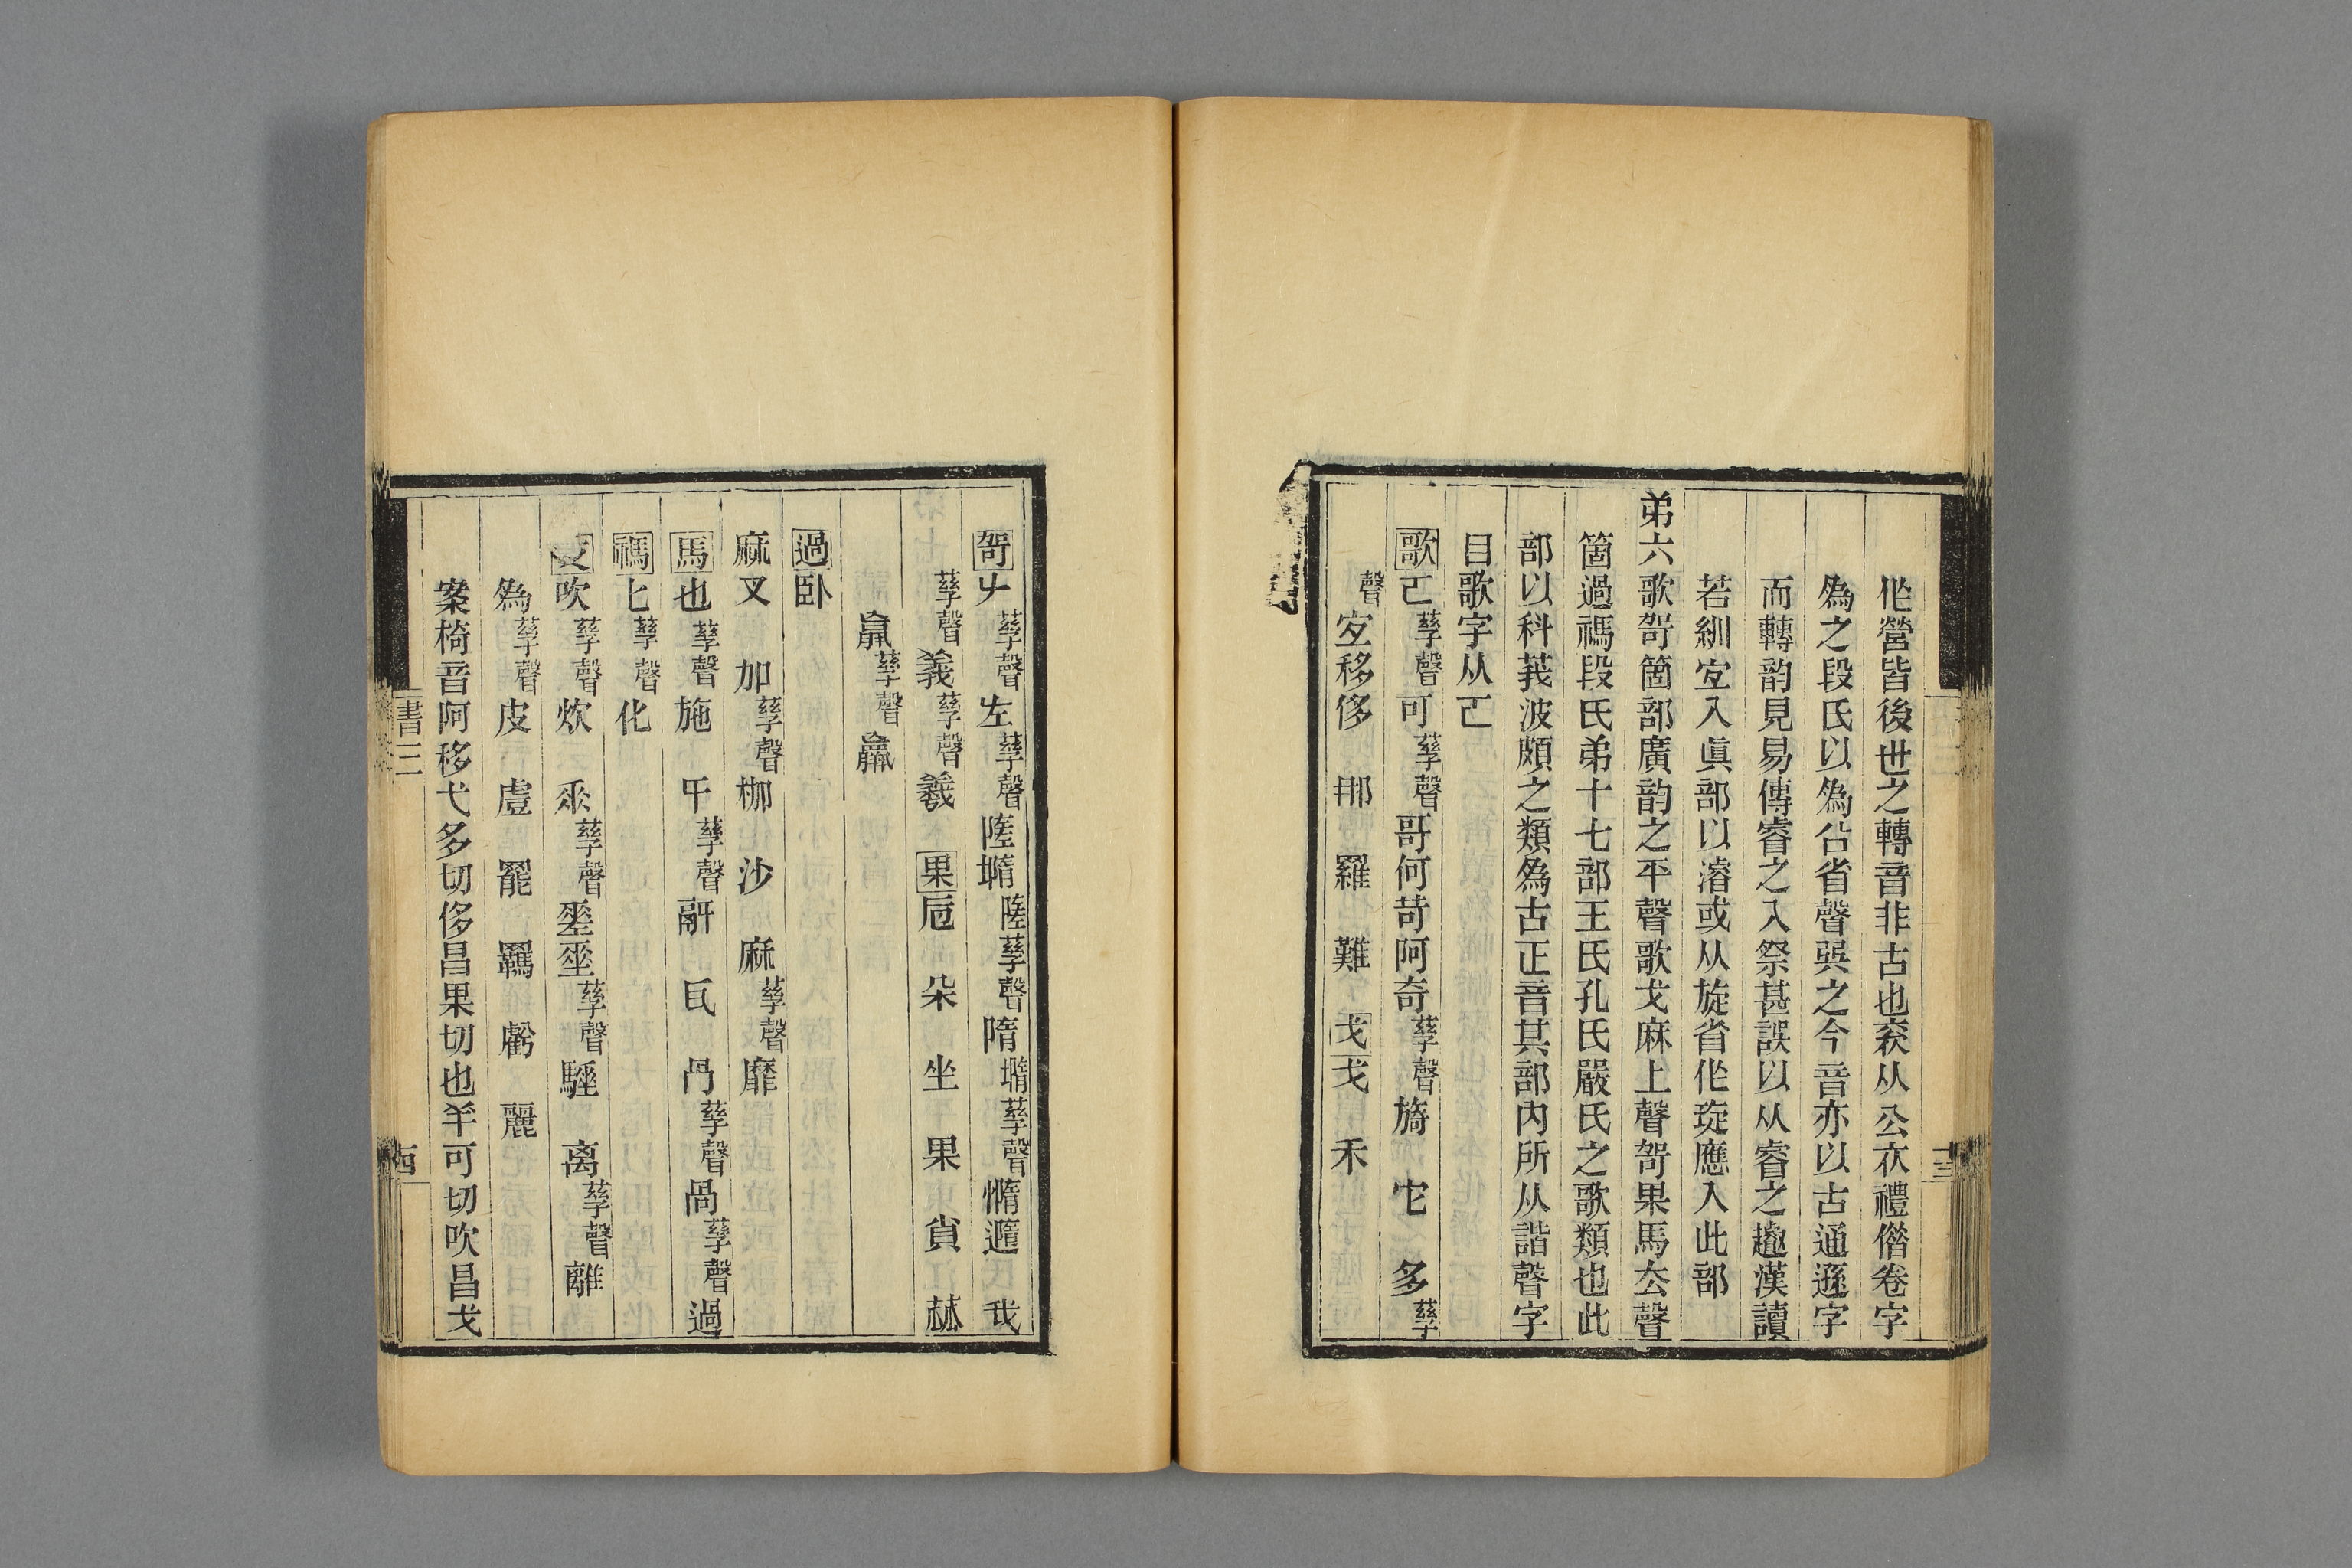 作營皆後世之轉音非古也袞从公衣禮僭卷字
爲之段氏以爲㕣省聲巽之今音亦以古通遜字
而轉韵見易傳睿之入祭甚誤以从睿之趨漢讀
若紃宜入眞部以濬或从旋省作璇應入此部
弟六歌哿箇部廣韵之平聲歌戈麻上聲哿果馬去聲
箇過禡段氏弟十七部王氏孔氏嚴氏之歌類也此
部以科莪波頗之類爲古正音其部内所从諧聲字
目歌字从𠀀
歌𠀀孳聲可孳聲哥何苛阿奇孳聲旖它多孳
聲宜移侈那羅難戈戈禾
哿𠂇孳聲左孳聲隓堶隓孳聲隋堶孳聲惰䜐我
孳聲義孳聲羲果厄朵坐果貟𣏟
𦝠孳聲羸
過臥
麻叉加孳聲枷沙麻孳聲靡
馬也孳聲施𠀁孳聲䚷㠯冎孳聲咼孳聲過
禡𠤎孳聲化
支吹孳聲炊𠂹孳聲𡍮坙孳聲騅离孳聲離
爲孳聲皮虘罷羈虧麗
案椅音阿移弋多切侈昌果切也羊可切吹昌戈
書三
十三
十四